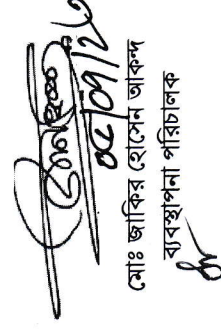 ০৫/০১/২৬
মোঃ জাকির হোসেন আকন্দ
ব্যবস্থাপনা পরিচালক